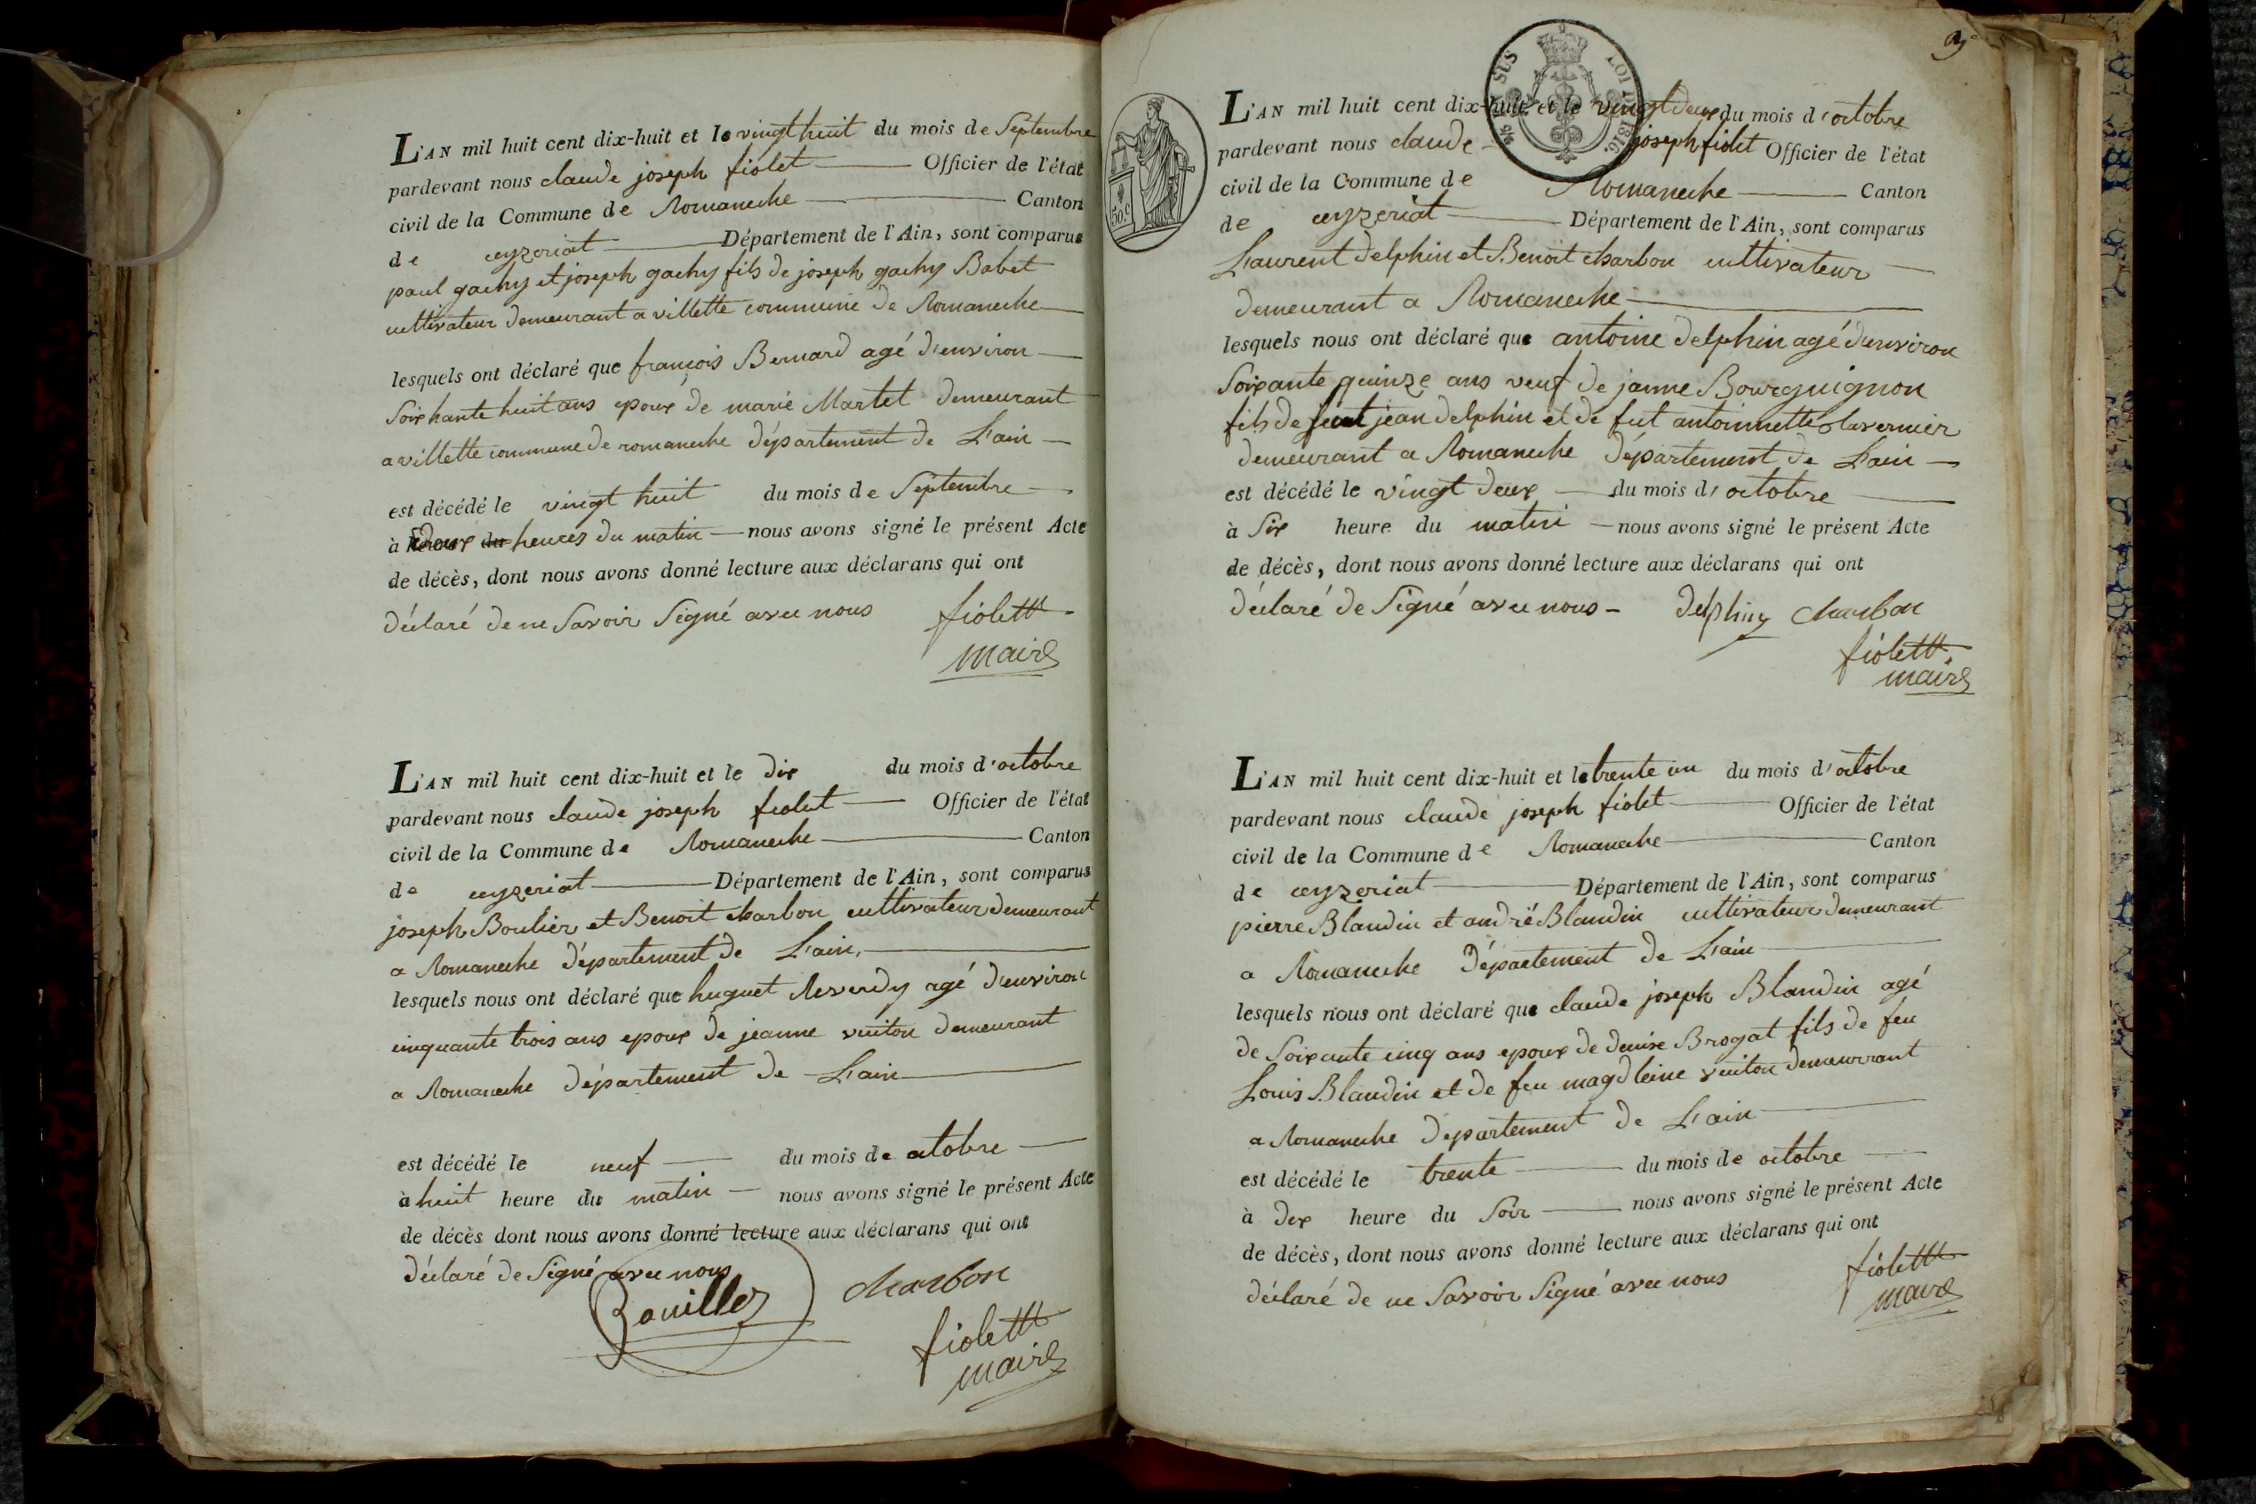 L'AN mil huit cent dix-huit et le vingt huit du mois de Septembre
pardevant nous claude joseph fiolet Officier de l'état
civil de la Commune de Romaneche Canton
de ceyzeriat Département de l'Ain, sont comparus
paul gachy et joseph gachy fils de joseph gachy Babet
cultivateur demeurant a villette commune de Romaneche
lesquels ont déclaré que françois Bernard agé d'environ
Soixhante huit ans epoux de marie Martel demeurant
a villette commune de romaneche département de L'ain
est décédé le vingt huit du mois de Septembre
à deux du heures du matin nous avons signé le présent Acte
de décès, dont nous avons donné lecture aux déclarans qui ont
déclaré de ne Savoir Signé avec nous fiolett
maire
L'AN mil huit cent dix-huit et le dix du mois d'octobre
pardevant nous claude joseph fiolet Officier de l'état
civil de la Commune de Romaneche Canton
de ceyzeriat Département de l'Ain, sont comparus
joseph Boulier et Benoit charbon cultivateur demeurant
a Romaneche département de L'ain,
lesquels nous ont déclaré que huguet Reverdy agé d'environ
cinquante trois ans epoux de jeanne vuiton demeurant
a Romaneche département de L'ain
est décédé le neuf du mois de octobre
à huit heure du matin nous avons signé le présent Acte
de décès dont nous avons donné lecture aux déclarans qui ont
déclaré de Signé avec nous
Bouiller charbon
fiolett
maire
SUS LOI 1816.
50.c
L'AN mil huit cent dix-huit et le vingt deux du mois d'octobre
pardevant nous claude joseph fiolet Officier de l'état
civil de la Commune de Romaneche Canton
de ceyzeriat Département de l'Ain, sont comparus
Laurent delphin et Benoit charbon cultivateur
demeurant a Romaneche
lesquels nous ont déclaré que antoine delphin agé d'environ
Soixante quinze ans veuf de janne Bourguignon
fils de feut jean delphin et de fut antoinnette lavernier
demeurant a Romaneche département de L'ain
est décédé le vingt deux du mois d'octobre
à Six heure du matin nous avons signé le présent Acte
de décès, dont nous avons donné lecture aux déclarans qui ont
déclaré de Signé avec nous delphin charbon
fiolett
maire
L'AN mil huit cent dix-huit et le trente un du mois d'octobre
pardevant nous claude joseph fiolet Officier de l'état
civil de la Commune de Romaneche Canton
de ceyzeriat Département de l'Ain, sont comparus
pierre Blandin et andré Blandin cultivateur demeurant
a Romaneche Département de L'ain
lesquels nous ont déclaré que claude joseph Blandin agé
de Soixante cinq ans epoux de denise Brogat fils de feu
Louis Blandin et de feu magdleine vuiton demeurrant
a Romaneche département de L'ain
est décédé le trente du mois de octobre
à dix heure du Soir nous avons signé le présent Acte
de décès, dont nous avons donné lecture aux déclarans qui ont
déclaré de ne Savoir Signé avec nous fiolett
maire